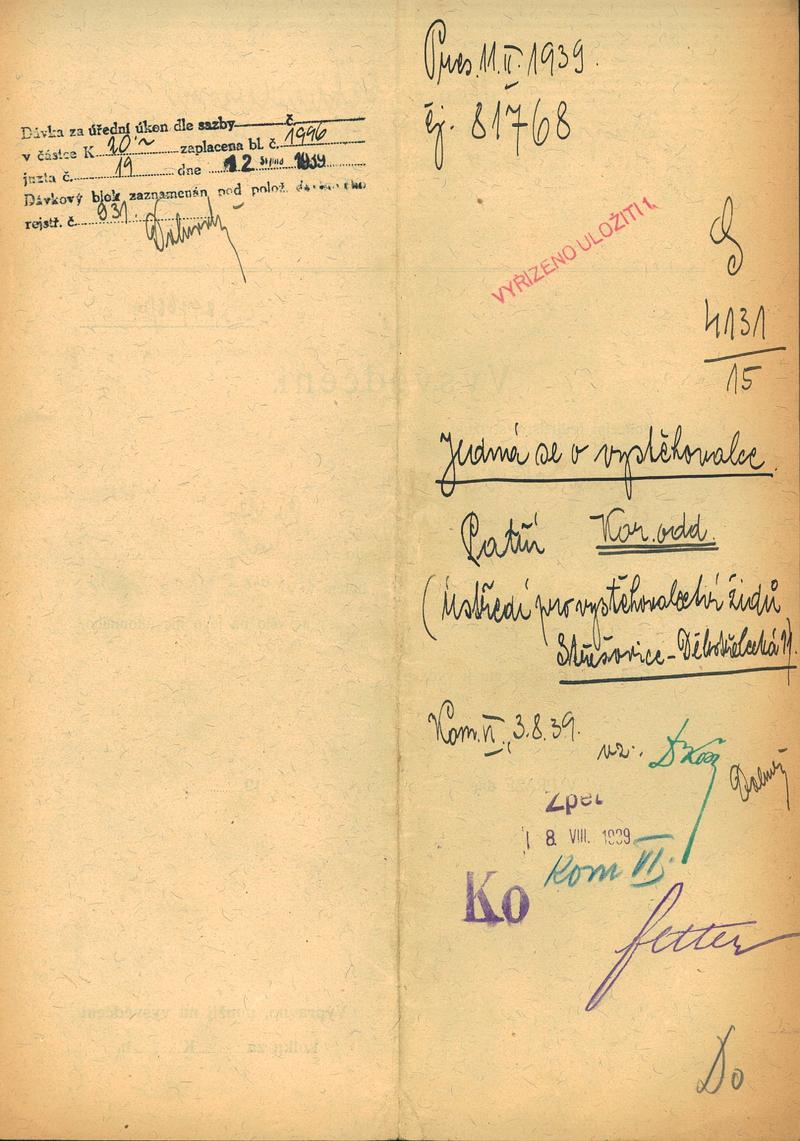 Dávka za úřední úkon dle sazby č.
v částce K 20 zaplacena bl. č. 1996
juxta č. 19 dne 12 1939
Dávkový blok zaznamenán pod polož.
rejstř. č. 931.
Pres. 11. II. 1939.
čj. 81768
VYŘÍZENO ULOŽITI 1.
S
4131
15
Jedná se o vystěhovalce.
Patří Kar. odd.
(Ústředí pro vystěhovalectví židů
Střešovice - Dělostřelecká 11).
Kom. VI., 3.8.39.
vz.
Zpět
18 VIII. 1939
Kom VI.
Ko
fetter
Do